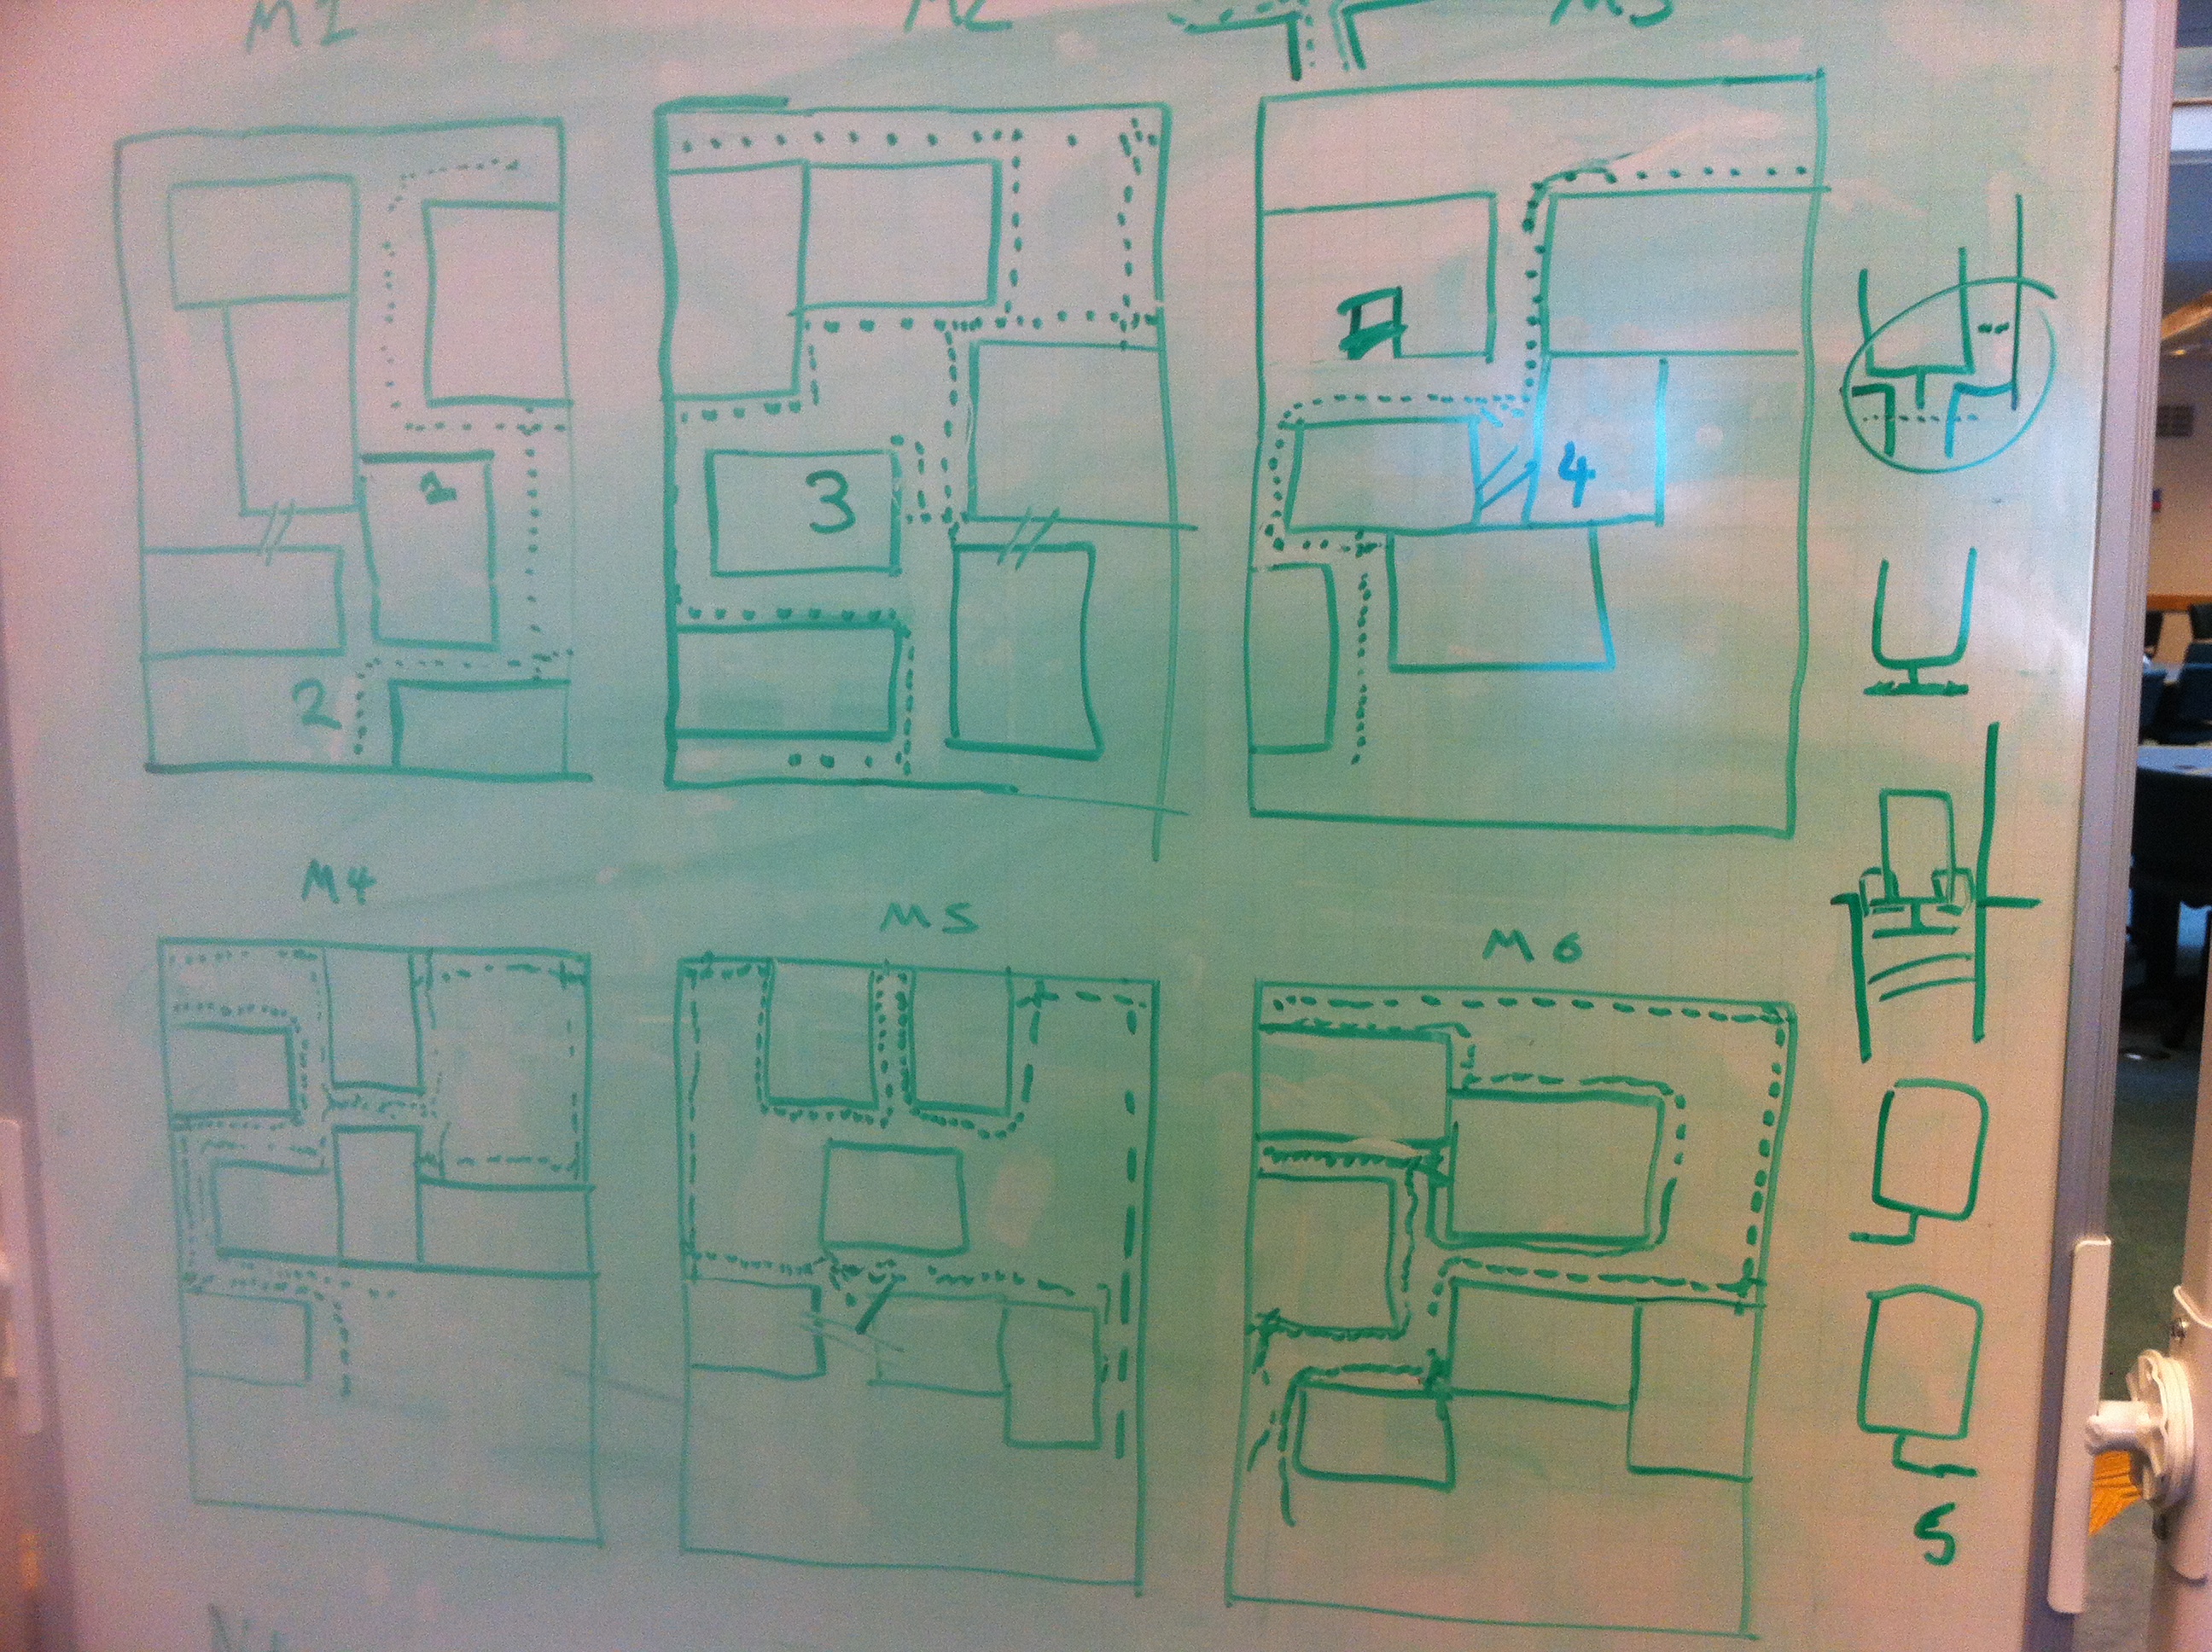 M1 M2 M3
3
4
2
M4
M5
M6
5